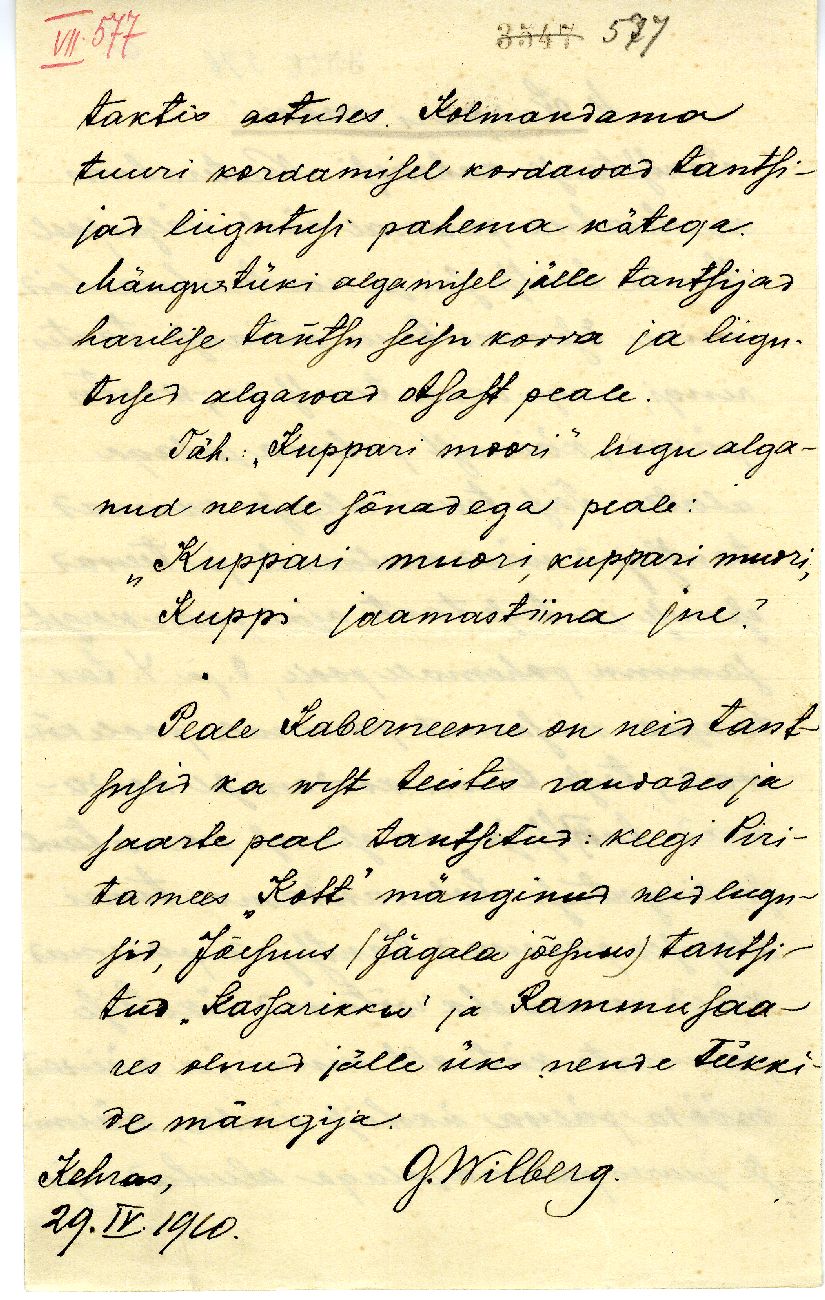 VII 577
3547 577
taktis astudes. Kolmandama
tuuri kordamisel kordawad tantsi-
jad liigutusi pahema kätega.
Mängustüki algamisel jälle tantsijad
harilise tantsu seisu korra ja liigu-
tused algawad otsast peale.
Täh.: „Kuppari moori" lugu alga-
nud nende sõnadega peale:
„Kuppari muori, kuppari muori,
Kuppi jaamastiina jne."
Peale Kaberneeme on neid tant-
susid ka wist teistes randades ja
saarte peal tantsitud: keegi Piri-
ta mees „Kott" mänginud neid lugu-
sid, Jõesuus (Jägala jõesuus) tantsi-
tud „Kassarikku" ja Rammusaa-
res olnud jälle üks nende tükki-
de mängija.
Kehras, G. Wilberg.
29. IV 1910.